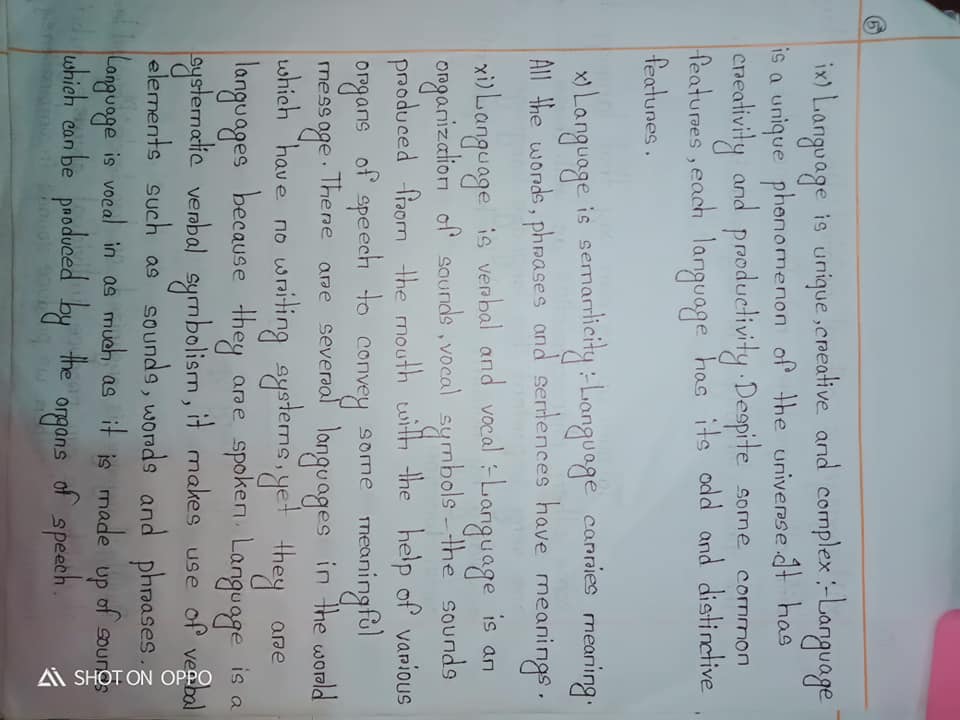 5
ix) Language is unique, creative and complex :- Language
is a unique phonomenon of the universe. It has
creativity and productivity. Despite some common
features, each language has its odd and distinctive
features.
x) Language is semanticity :- Language carries meaning.
All the words, phrases and sentences have meanings.
xi) Language is verbal and vocal :- Language is an
organization of sounds, vocal symbols - the sounds
produced from the mouth with the help of various
organs of speech to convey some meaningful
message. There are several languages in the world
which have no writing systems, yet they are
languages because they are spoken. Language is a
systematic verbal symbolism, it makes use of verbal
elements such as sounds, words and phrases.
Language is vocal in as much as it is made up of sounds
which can be produced by the organs of speech.
SHOT ON OPPO